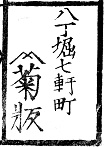 八丁堀七軒町
菊版